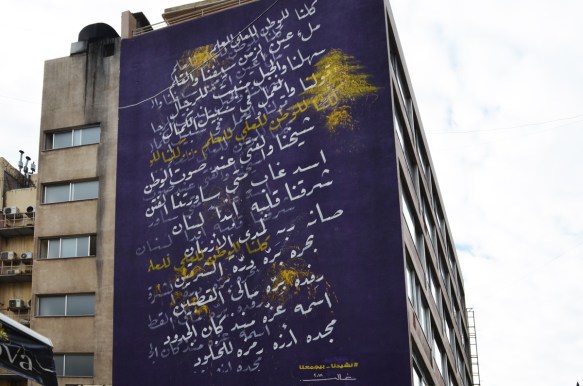 كلنا للوطن للعلى للعلم
ملء عين الزمن سيفنا والقلم
سهلنا والجبل منبت للرجال
قولنا والعمل في سبيل الكمال
كلنا للوطن للعلى للعلم ... كلنا للوطن
شيخنا والفتى عند صوت الوطن
اسد غاب متى ساورتنا الفتن
شرقنا قلبه ابدا لبنان
صانه ربه لمدى الازمان
كلنا للوطن للعلى للعلم
بحره بره درة الشرقين
رفده بره مالئ القطبين
اسمه عزه منذ كان الجدود
مجده ارزه رمزه للخلود
#نشيدنا_بيجمعنا
ova